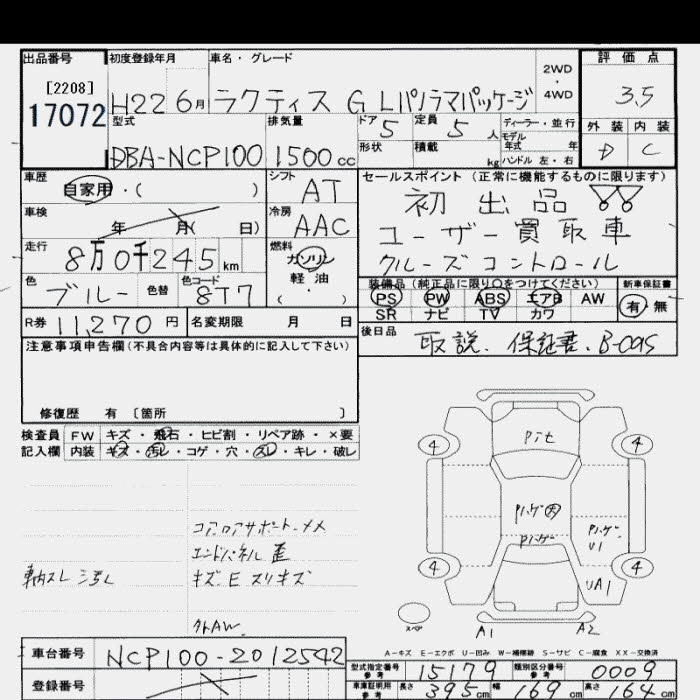 出品番号 初度登録年月 車名・グレード 評価点
[2208] 2WD・4WD
17072 H22 6月 ラクティス G Lパノラマパッケージ 3.5
型式 排気量 ドア 5 定員 5人 ディーラー・並行 外装 内装
モデル年式 年
DBA-NCP100 1500cc 形状 積載 kg ハンドル 左・右 D C
車歴 シフト セールスポイント (正常に機能するものに限ります)
自家用・( ) AT 初出品
車検 冷房
年 月( 日) AAC ユーザー買取車
走行 燃料
8万0千245km ガソリン クルーズコントロール
軽・油
色 色替 色コード ( ) 装備品(純正品に限り○をつけてください) 新車保証書
ブルー 8T7 PS PW ABS エアB AW 有・無
SR ナビ TV カワ
R券 11,270円 名変期限 月 日 後日品
取説、保証書、B-CAS
注意事項申告欄(不具合内容等は具体的に記入して下さい)
修復歴 有 〔箇所 〕
検査員 FW キズ・飛石・ヒビ割・リペア跡・×要
記入欄 内装 キズ・汚レ・コゲ・穴・スレ・キレ・破レ
コアロアサポートメメ
エンドパネル歪
車内スレ汚レ キズ E スリキズ
外AW
4 4
4 4
U1
UA1
スペア
A1 A2
A-キズ E-エクボ U-凹み W-補修跡 S-サビ C-腐食 XX-交換済
車台番号 NCP100-2012542
型式指定番号 参考 15179 類別区分番号 参考 0009
登録番号
車庫証明用 参考 長さ 395cm 幅 169cm 高さ 164cm